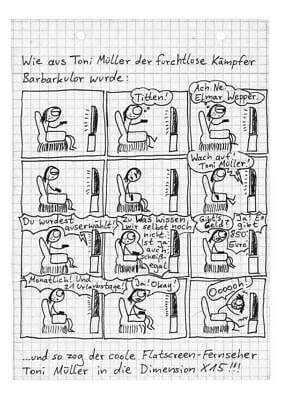 Wie aus Toni Müller der furchtlose Kämpfer
Barbarkulor wurde:
Titten!
Ach Ne
Elmar Wepper.
Wach auf!
Toni Müller!
Du wurdest
auserwählt!
Zu Was wissen
wir selbst noch
nicht.
Ist ja
auch
scheiß-
egal.
Gibt's
Geld?
Ja! Es
gibt
850
Euro!
Monatlich! Und
21 Urlaubstage!
Ja! Okay!
Oooooh!
...und so zog der coole Flatscreen-Fernseher
Toni Müller in die Dimension X15!!!